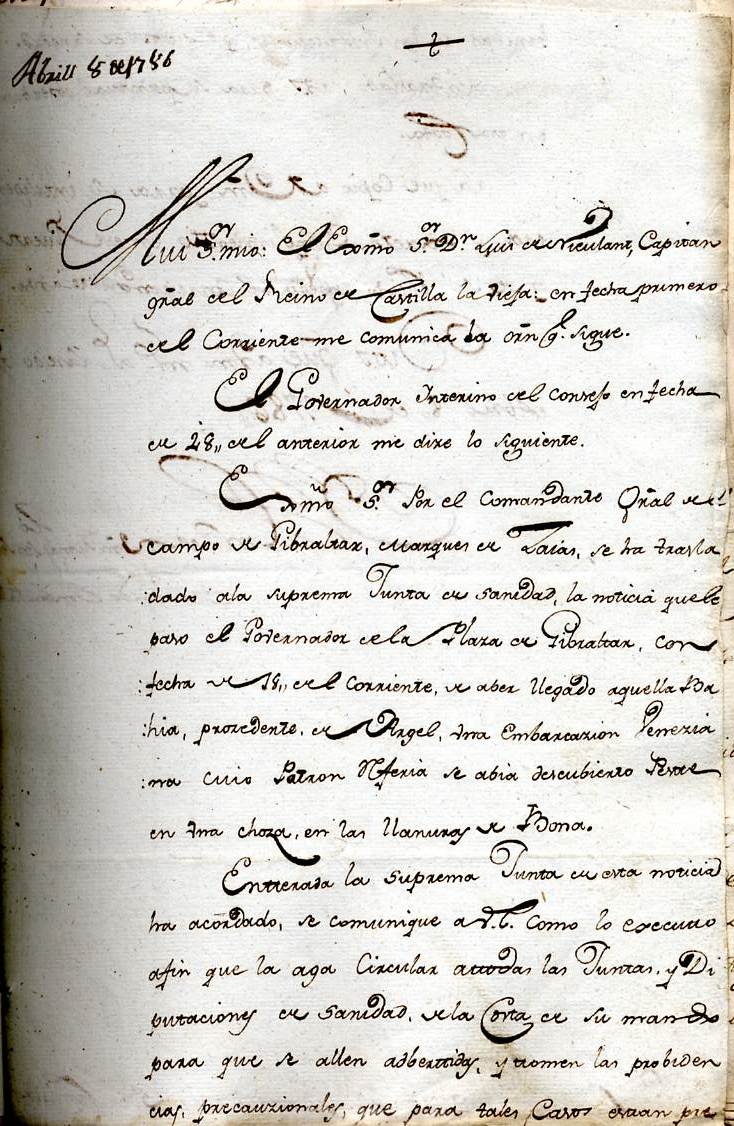 Abrill 8 de 1786
Mui S.or mio: El Exmõ S.or D.n Luis de Niculant, Capitan
gñal del Reino de Castilla la Vieja: en fecha primero
del Corriente me comunica la orñ q.e sigue.
El Governador Ynterino del Consejo en fecha
de 28,, del anterior me dize lo siguiente.
Exmõ S.or Por el Comandante Gñal del
campo de Gibraltar, Marques de Zaias, se ha trasla
:dado ala suprema Junta de sanidad, la noticia que le
paso el Governador de la Plaza de Gibraltar, con
:fecha de 18,, del Corriente, de aber llegado aquella Ba
:hia, prozedente, de Argel, vna Embarcazion Venezia
:na cuio Patron Referia se abia descubierto Peste
en vna choza, en las llanuras de Bona.
Entterada la Suprema Junta de esta noticia
ha acordado, se comunique a V.E. Como lo executo
afin que la aga Circular attodas las Juntas, y Di
putaciones de Sanidad, de la Costa de su mando
para que se allen adberttidas, y tomen las probiden
cias, precauzionales, que para tales Casos estan pre